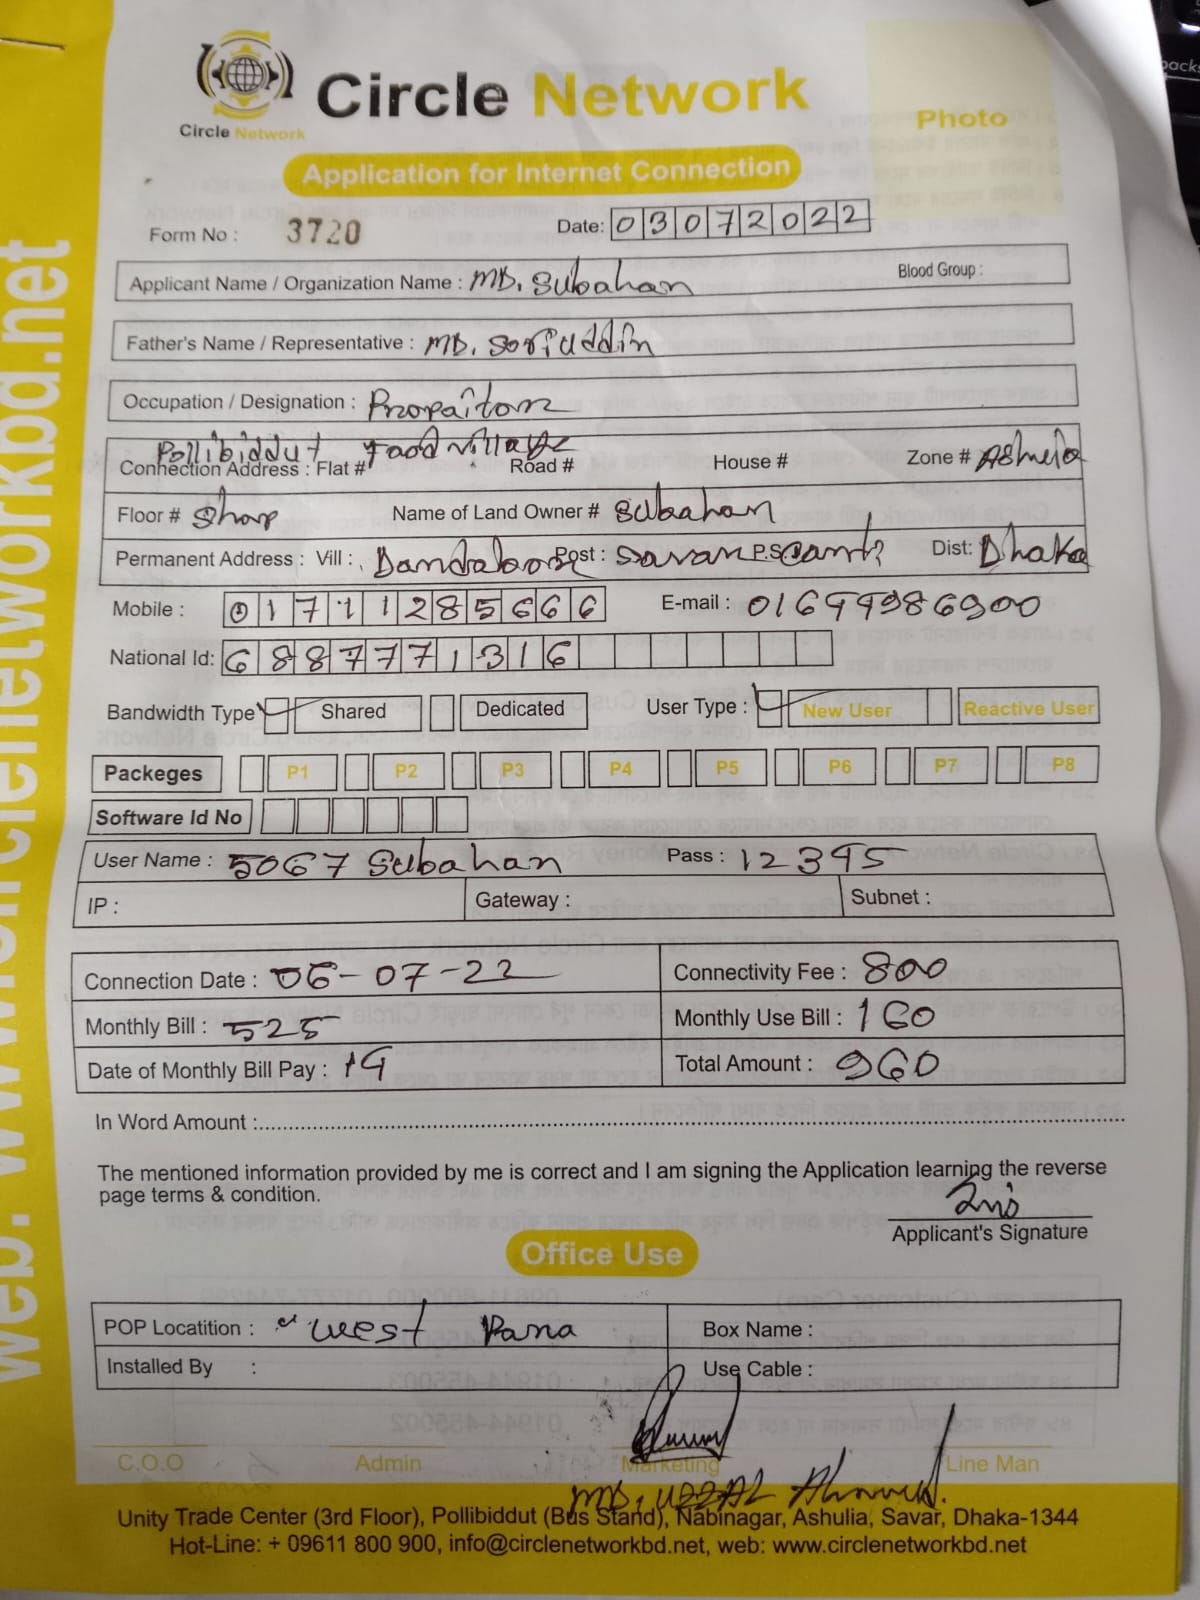 Circle Network
Circle Network
Photo
Application for Internet Connection
Form No : 3720
Date: 03072022
Applicant Name / Organization Name : MD. Subahan
Blood Group :
Father's Name / Representative : MD. Sorifuddin
Occupation / Designation : Propaitor
Pollibiddut Food village
Connection Address : Flat # Road # House # Zone # Ashula
Floor # Shop Name of Land Owner # Subahan
Permanent Address : Vill : Post : Savar P.S: Dist: Dhaka
Mobile : 01711285666 E-mail :
National Id: 6887771316
Bandwidth Type Shared Dedicated User Type : New User Reactive User
Packeges P1 P2 P3 P4 P5 P6 P7 P8
Software Id No
User Name : 5067 Subahan Pass : 12345
IP : Gateway : Subnet :
Connection Date : 06-07-22 Connectivity Fee : 800
Monthly Bill : 525 Monthly Use Bill : 160
Date of Monthly Bill Pay : Total Amount : 960
In Word Amount :
The mentioned information provided by me is correct and I am signing the Application learning the reverse
page terms & condition.
Applicant's Signature
Office Use
POP Locatition : west Para Box Name :
Installed By : Use Cable :
C.O.O Admin Marketing Line Man
MD. UZZAL Ahmed.
Unity Trade Center (3rd Floor), Pollibiddut (Bus Stand), Nabinagar, Ashulia, Savar, Dhaka-1344
Hot-Line: + 09611 800 900, info@circlenetworkbd.net, web: www.circlenetworkbd.net
web: www.circlenetworkbd.net